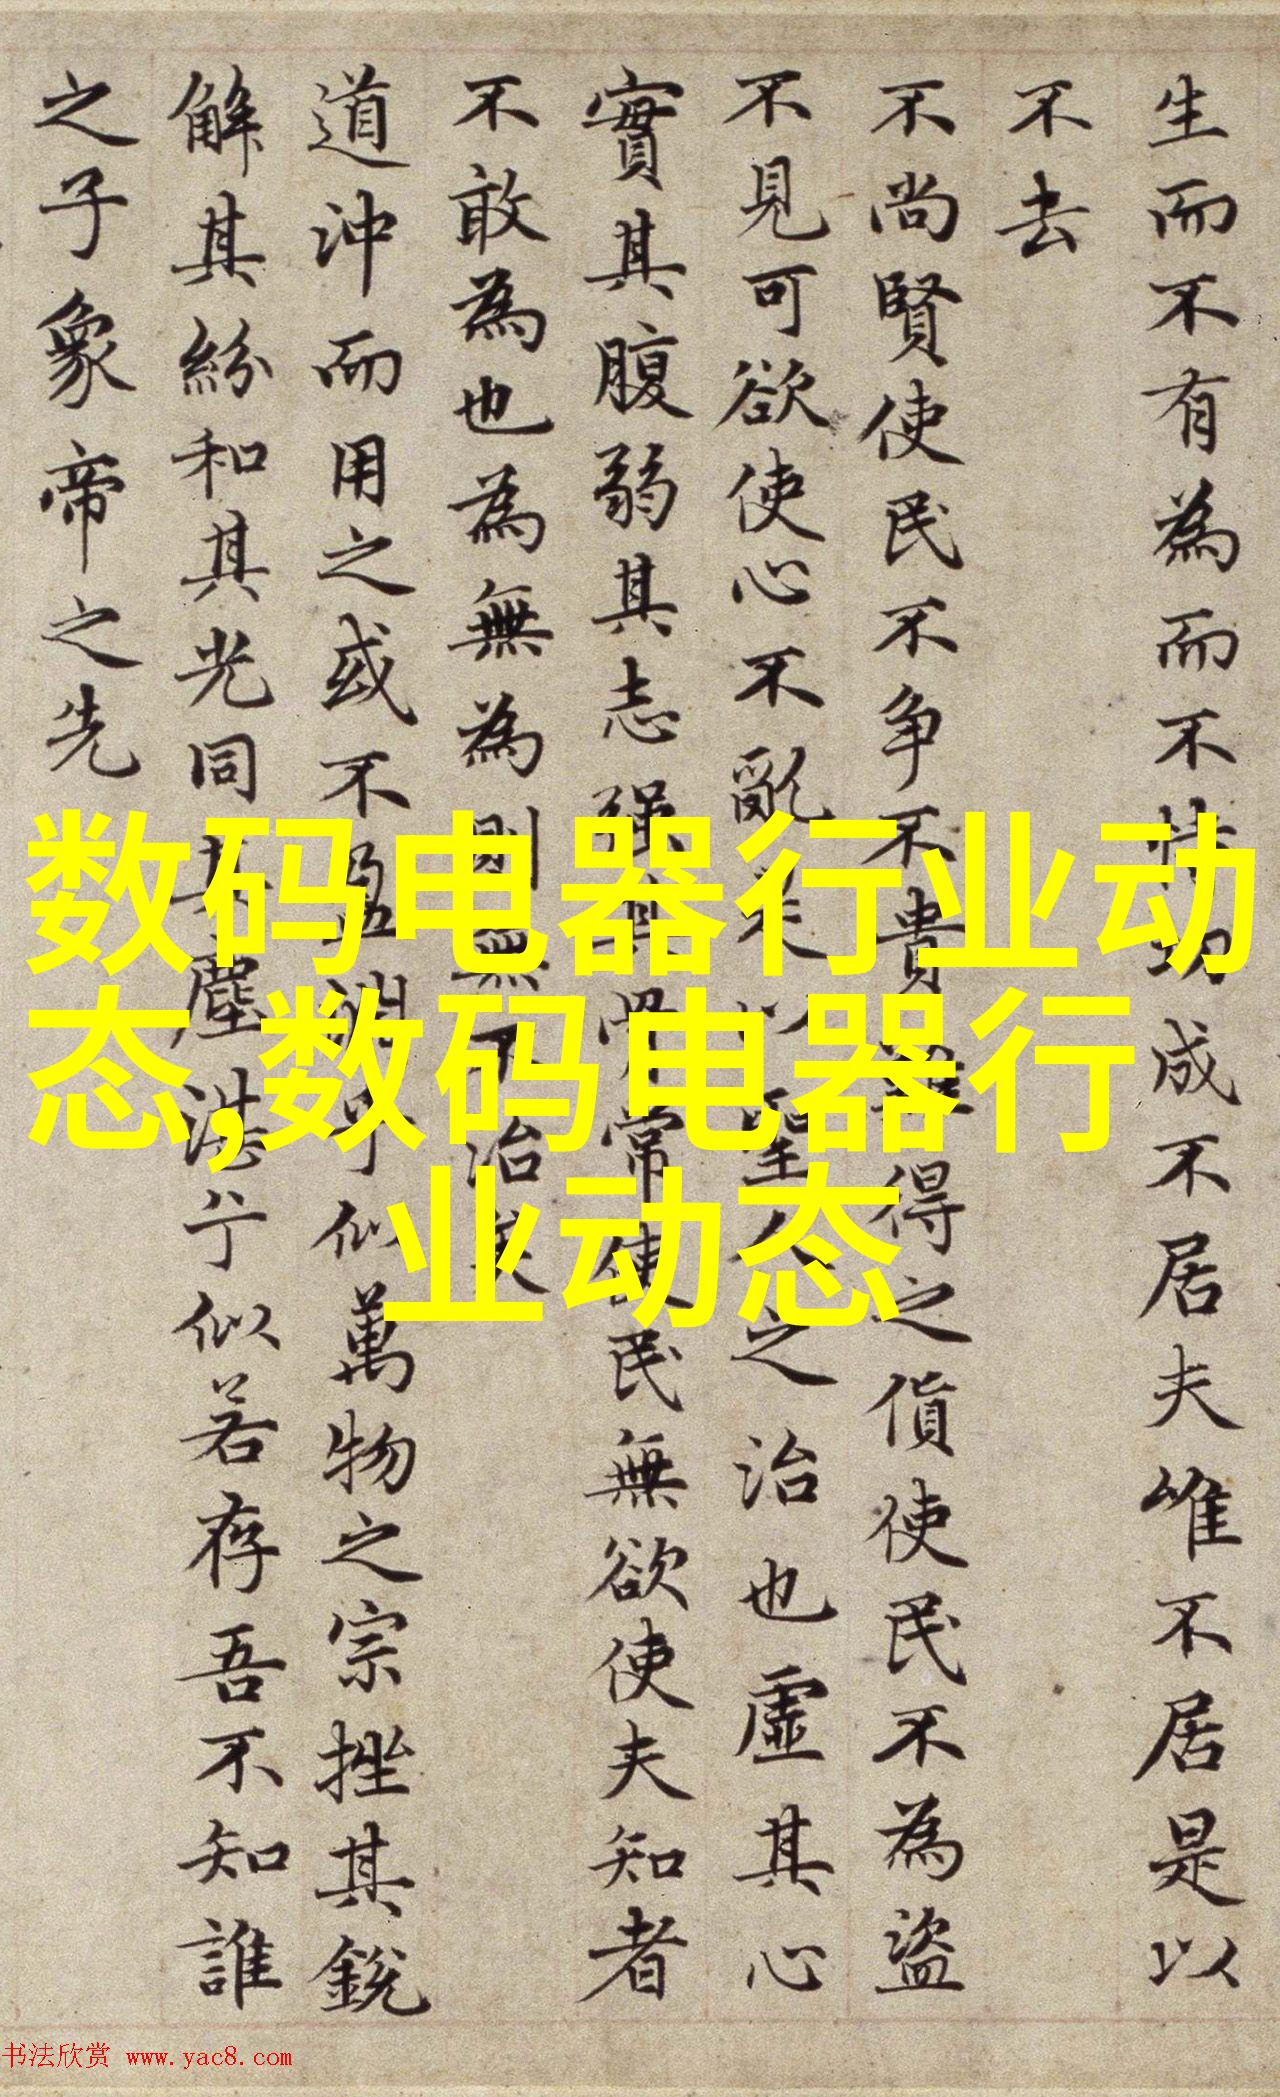 生而不有為而不恃功成不居夫唯不居是以
不去
不尚賢使民不争不貴難得之貨使民不為盜
不見可欲使心不亂是以聖人之治也虛其心
實其腹弱其志强其骨常使民無欲使夫知者
不敢為也為無為則無不治矣
道沖而用之或不盈淵乎似萬物之宗挫其銳
解其紛和其光同其塵湛兮似若存吾不知誰
之子象帝之先
数码电器行业动
态,数码电器行
业动态
书法欣赏 www.yac8.com